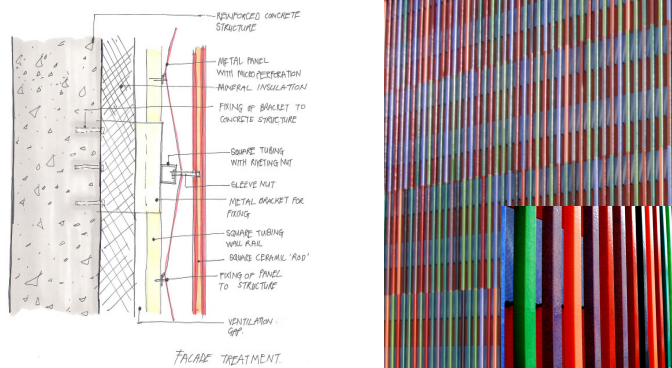 REINFORCED CONCRETE
STRUCTURE
METAL PANEL
WITH MICROPERFORATION
MINERAL INSULATION
FIXING OF BRACKET TO
CONCRETE STRUCTURE
SQUARE TUBING
WITH RIVETING NUT
SLEEVE NUT
METAL BRACKET FOR
FIXING
SQUARE TUBING
WALL RAIL
SQUARE CERAMIC 'ROD'
FIXING OF PANEL
TO STRUCTURE
VENTILATION
GAP.
FACADE TREATMENT.